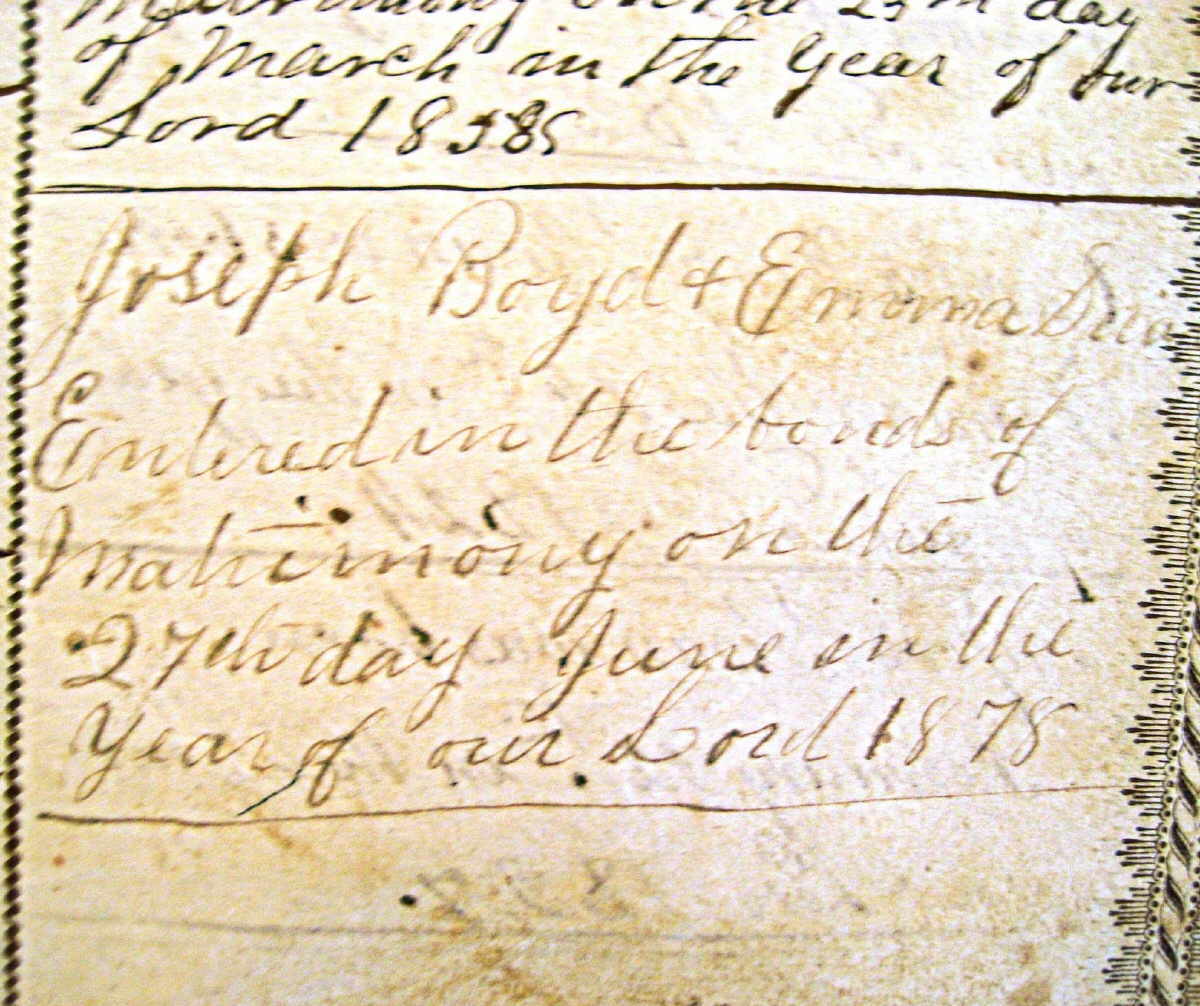 Matrimony on the 25th day
of March in the year of our
Lord 1858
Joseph Boyd & Emma
Entered in the bonds of
Matrimony on the
27th day June in the
Year of our Lord 1878